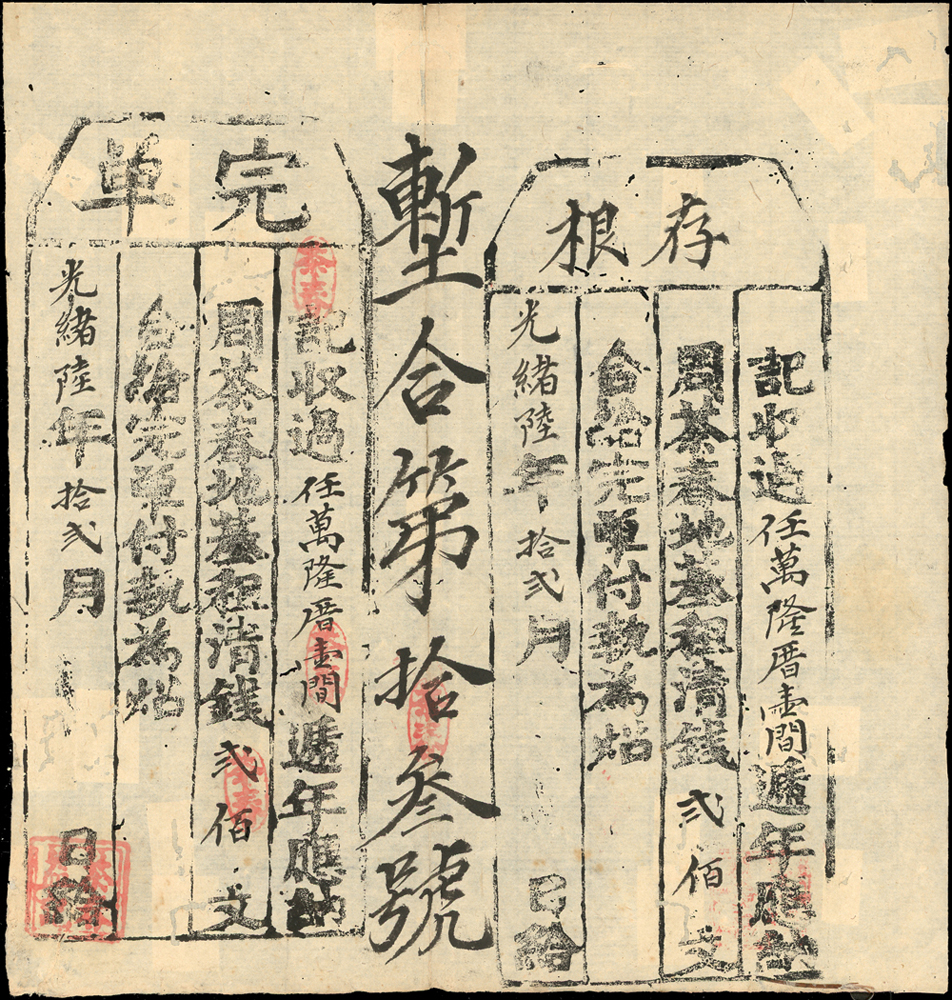 存根
記收過任萬隆厝壹間遞年應納
周茶春地基租清錢弍佰文
合給完單付執為炤
光緒陸年拾弍月 日給
塹合第拾叁號
完單
記收過任萬隆厝壹間遞年應納
周茶春地基租清錢弍佰文
合給完單付執為炤
光緒陸年拾弍月 日給